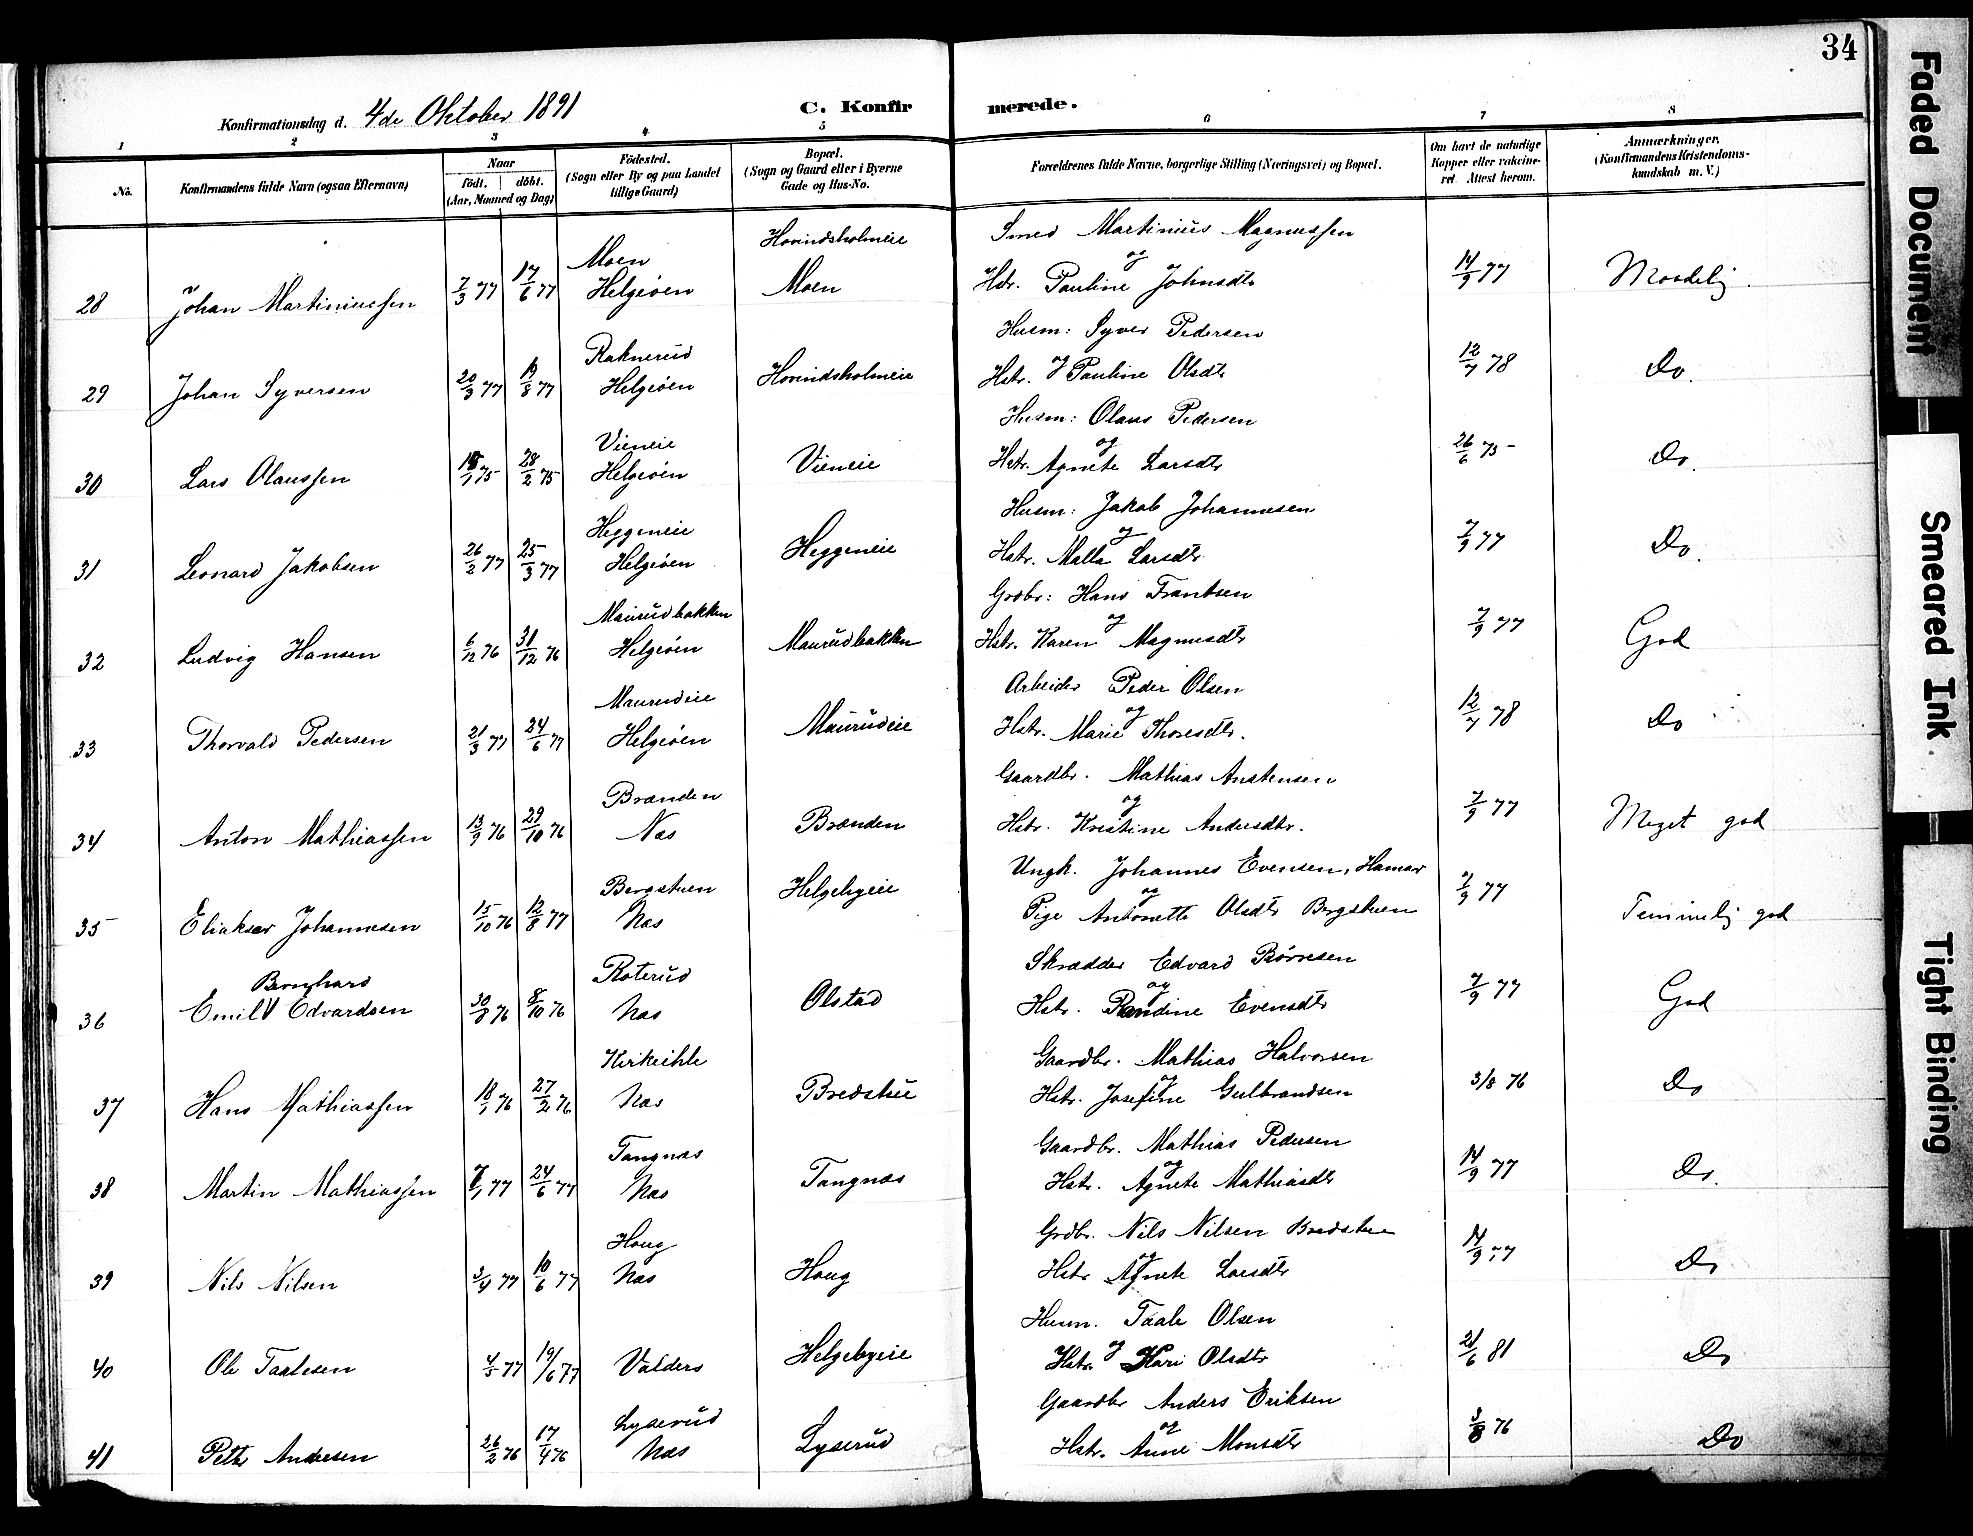 34
Konfirmationsdag d. 4de Oktober 1891
C. Konfirmerede.
1 2 3 4 5 6 7 8
No. Konfirmandens fulde Navn (ogsaa Efternavn) Naar født. døbt. (Aar, Maaned og Dag) Fødested. (Sogn eller By og paa Landet tillige Gaard) Bopæl. (Sogn og Gaard eller i Byerne Gade og Hus-No. Forældrenes fulde Navne, borgerlige Stilling (Næringsvei) og Bopæl. Om havt de naturlige Kopper eller vakcineret. Attest herom. Anmærkninger. (Konfirmandens Kristendomskundskab m. V.)
Moen Hovindsholmeie Smed Martinius Magnussen
28 Johan Martiniussen 7/3 77 17/6 77 Helgeøen Moen og Hstr. Pauline Johnsdtr 14/9 77 Maadelig.
Raknerud Husm: Syver Pedersen
29 Johan Syversen 20/3 77 Helgeøen Hovindsholmeie Hstr. og Pauline Olsdtr 12/7 78 Do.
Vieneie Husm: Olaus Pedersen
30 Lars Olaussen 28/2 75 Helgeøen Vieneie og Hstr. Agnete Larsdtr 26/6 75 Do.
Heggeneie Husm: Jakob Johannesen
31 Leonard Jakobsen 26/2 77 25/3 77 Helgeøen Heggeneie og Hstr. Malla Larsdtr 7/9 77 Do.
Maurudbakken Grdbr: Hans Frantsen
32 Ludvig Hansen 6/12 76 31/12 76 Helgeøen Maurudbakken og Hstr. Karen Magnusdtr 7/9 77 God
Maurudeie Arbeider Peder Olsen
33 Thorvald Pedersen 21/3 77 24/6 77 Helgeøen Maurudeie og Hstr. Marie Thoresdtr. 12/7 78 Do
Brænden Gaardbr. Mathias Anstensen
34 Anton Mathiassen 13/9 76 29/10 76 Næs Brænden og Hstr. Kristine Andersdtr. 7/9 77 Meget god
Bergstuen Ungk. Johannes Evensen, Hamar
35 Eliakser Johannesen 15/10 76 12/8 77 Næs Helgebyeie og Pige Antonette Olsdtr Bergstuen 7/9 77 Temmelig god
Bernhard Roterud Skrædder Edvard Børresen
36 Emil V Edvardsen 30/8 76 8/10 76 Næs Olstad og Hstr. Randine Evensdtr 7/9 77 God
Kirkeihle Gaardbr. Mathias Halvorsen
37 Hans Mathiassen 18/1 76 27/2 76 Næs Bredstue og Hstr. Josefine Gulbrandsen 3/8 76 Do
Tangnæs Gaardbr. Mathias Pedersen
38 Martin Mathiassen 24/6 77 Næs Tangnæs og Hstr. Agnete Mathiasdtr 14/9 77 Do.
Houg Grdbr. Nils Nilsen Bredstuen
39 Nils Nilsen 10/6 77 Næs Houg og Hstr Agnete Larsdtr 14/9 77 Do
Husm. Taale Olsen
40 Ole Taalesen 4/5 77 19/6 77 Valders Helgebyeie Hstr. og Kari Olsdtr 21/6 81 Do
Lyserud Gaardbr Anders Eriksen
41 Petter Andersen 26/2 76 17/4 76 Næs Lyserud og Hstr. Anne Monsdtr 3/8 76 Do
Faded Document
Smeared Ink
Tight Binding